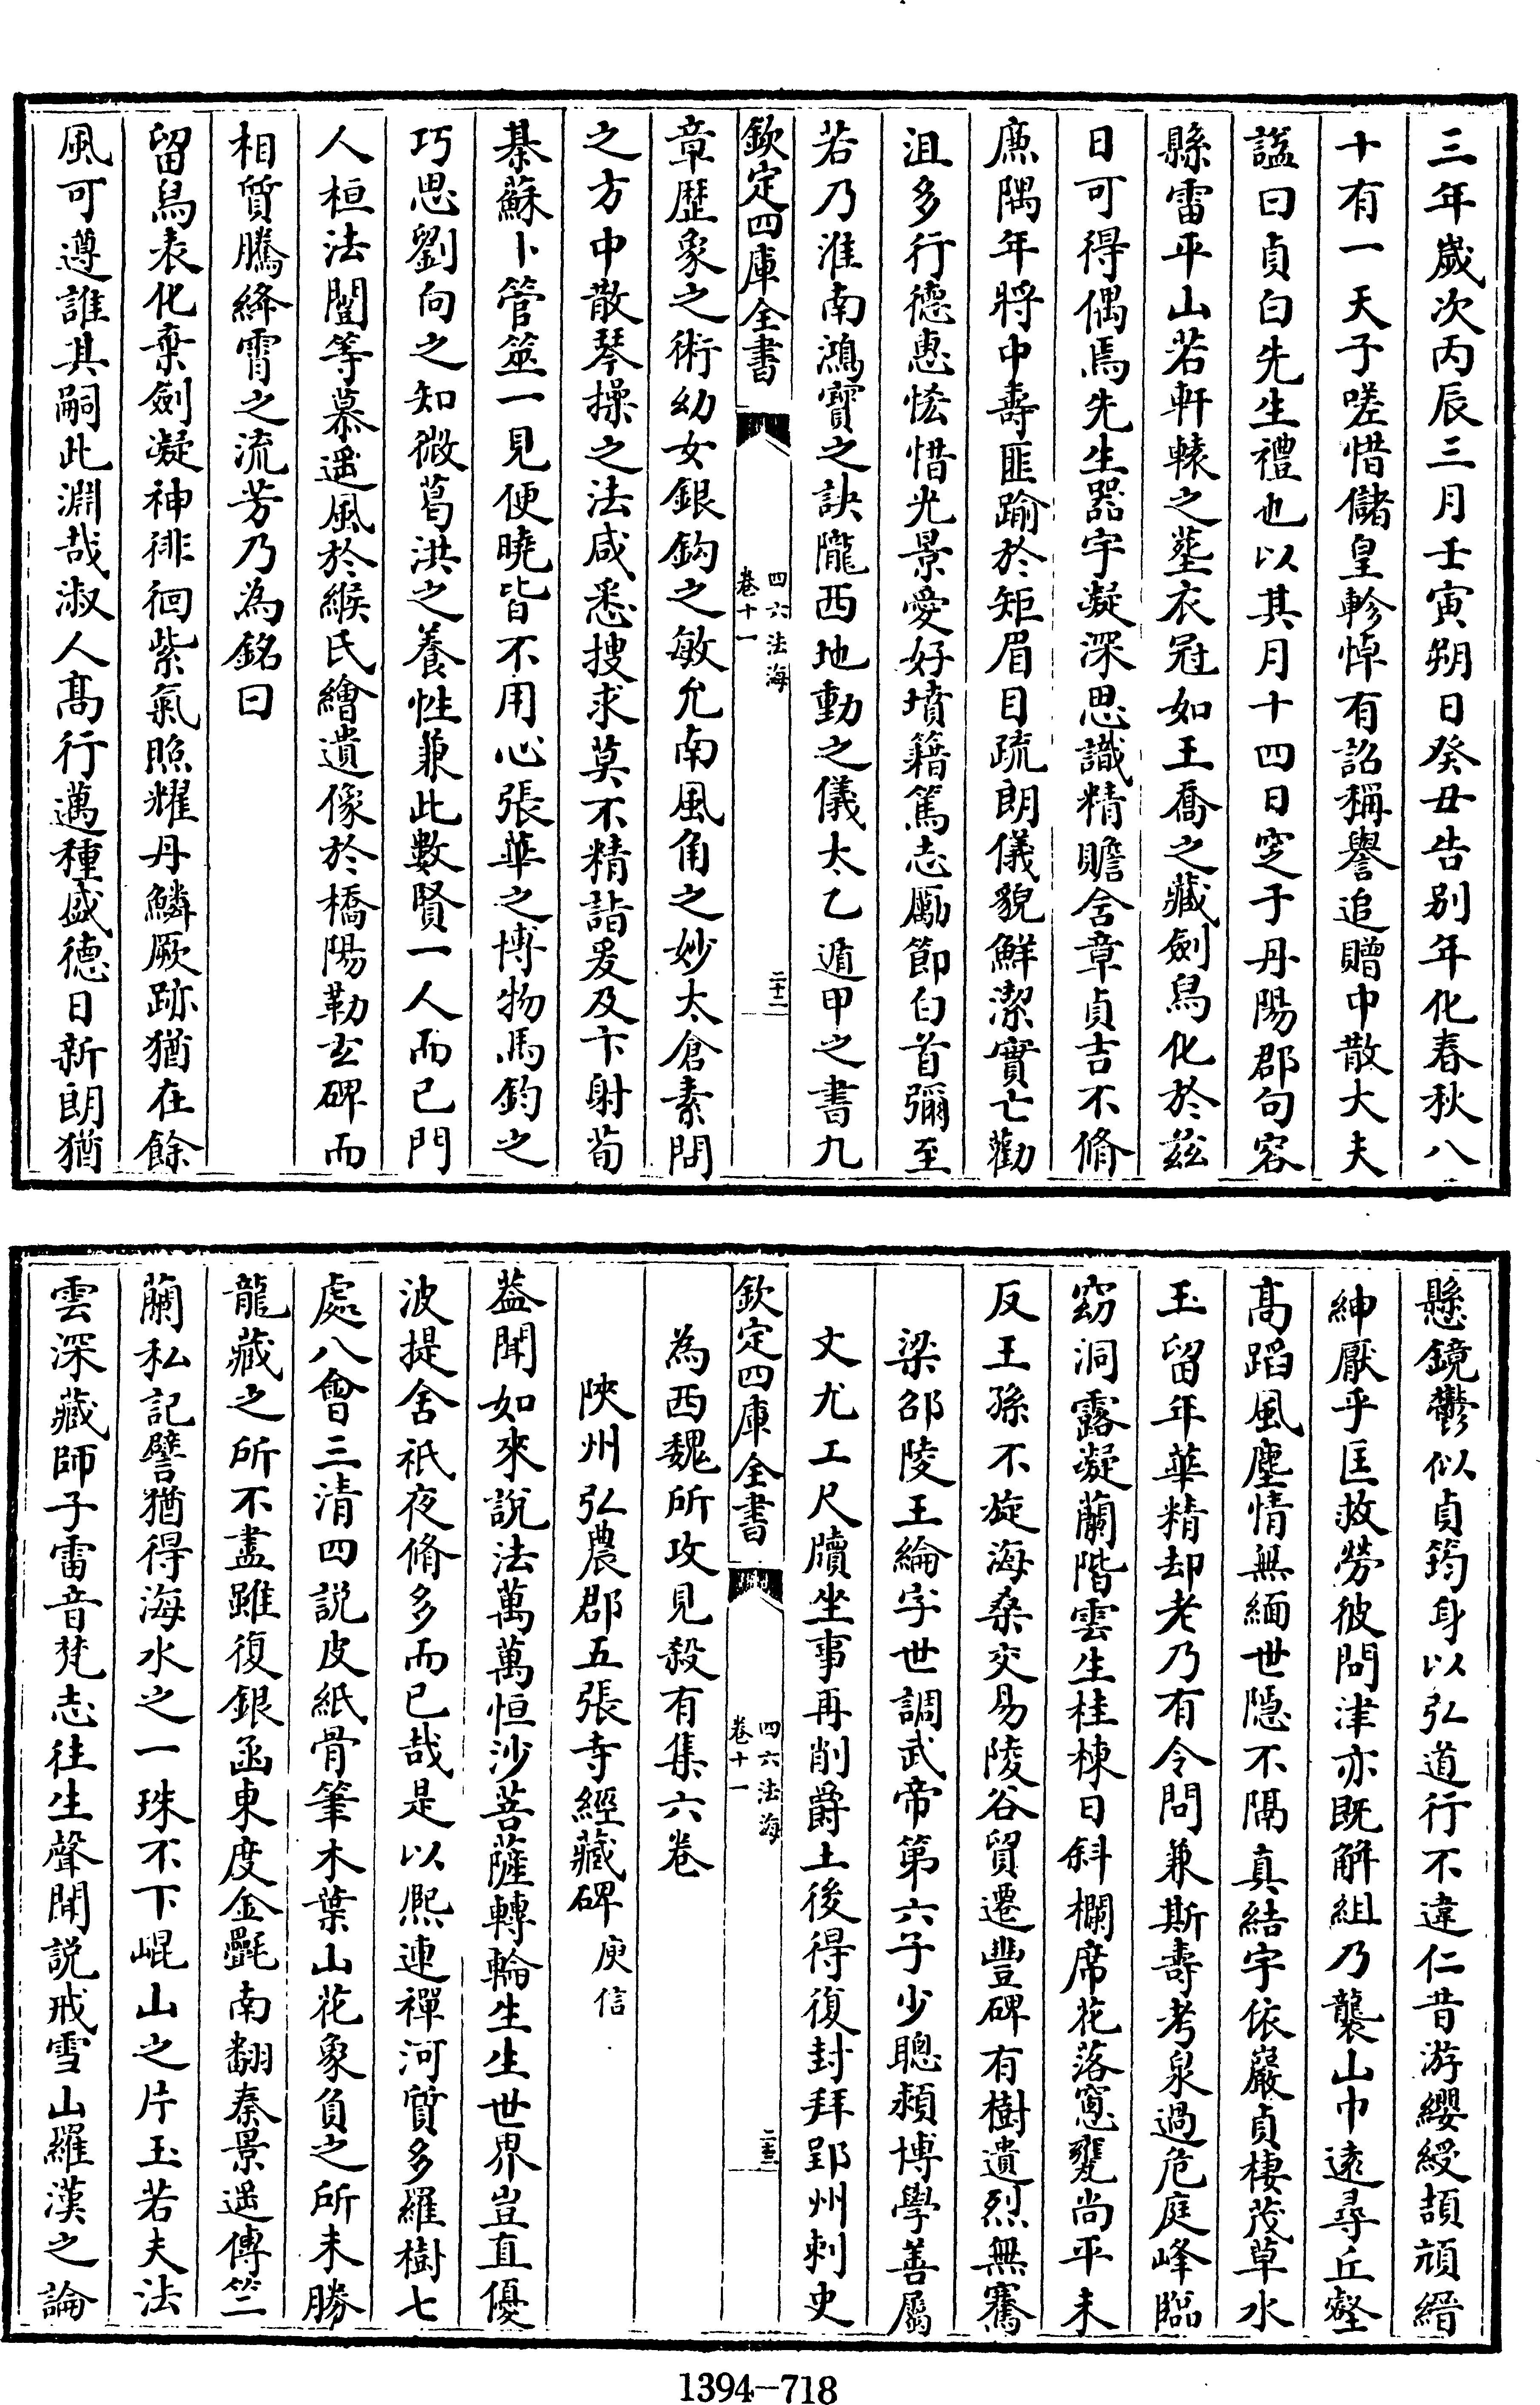 三年歲次丙辰三月壬寅朔日癸丑告别年化春秋八
十有一天子嗟惜儲皇軫悼有詔稱譽追贈中散大夫
諡曰貞白先生禮也以其月十四日窆于丹陽郡句容
縣雷平山若軒轅之塟衣冠如王喬之藏劍舄化於兹
日可得偶焉先生器宇凝深思識精贍含章貞吉不脩
廉隅年將中壽匪踰於矩眉目疏朗儀貌鮮潔實亡勸
沮多行德惠恡惜光景愛好墳籍篤志勵節白首彌至
若乃淮南鴻寶之訣隴西地動之儀太乙遁甲之書九
欽定四庫全書 四六法海 卷十一 二十二
章歷象之術幼女銀鈎之敏允南風角之妙太倉素問
之方中散琴操之法咸悉搜求莫不精詣爰及卞射荀
棊蘇卜管筮一見便曉皆不用心張華之博物馬鈞之
巧思劉向之知微葛洪之養性兼此數賢一人而已門
人桓法闓等慕遥風於緱氏繪遺像於橋陽勒玄碑而
相質騰絳霄之流芳乃為銘曰
留舄表化棄劍凝神徘徊紫氣照耀丹鱗厥跡猶在餘
風可遵誰其嗣此淵哉淑人髙行邁種盛德日新朗猶
懸鏡鬱似貞筠身以弘道行不違仁昔游纓綬頡頏縉
紳厭乎匡救勞彼問津亦既解組乃襲山巾遠尋丘壑
髙蹈風塵情無緬世隠不隔真結宇依巖貞棲茂草水
玉留年華精却老乃有令問兼斯壽考泉過危庭峰臨
窈洞露凝蘭階雲生桂棟日斜欄席花落窻甕尚平未
反王孫不旋海桑交易陵谷貿遷豐碑有樹遺烈無騫
梁邵陵王綸字世調武帝第六子少聰頴博學善屬
文尤工尺牘坐事再削爵土後得復封拜郢州刺史
欽定四庫全書 四六法海 卷十一 二十三
為西魏所攻見殺有集六卷
陜州弘農郡五張寺經藏碑 庾信
葢聞如來說法萬萬恒沙菩薩轉輪生生世界豈直優
波提舍祇夜脩多而已哉是以熈連禪河質多羅樹七
處八會三清四説皮紙骨筆木葉山花象負之所未勝
龍藏之所不盡雖復銀函東度金㲲南翻秦景遥傳竺
蘭私記譬猶得海水之一珠不下崐山之片玉若夫法
雲深藏師子雷音梵志往生聲聞説戒雪山羅漢之論
1394-718